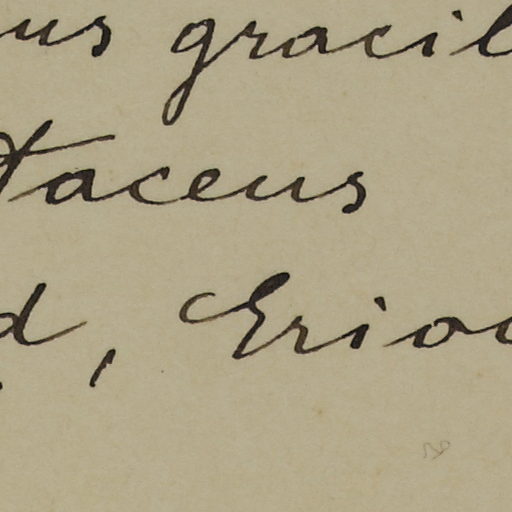 us gracil
taceus
d, Erioc